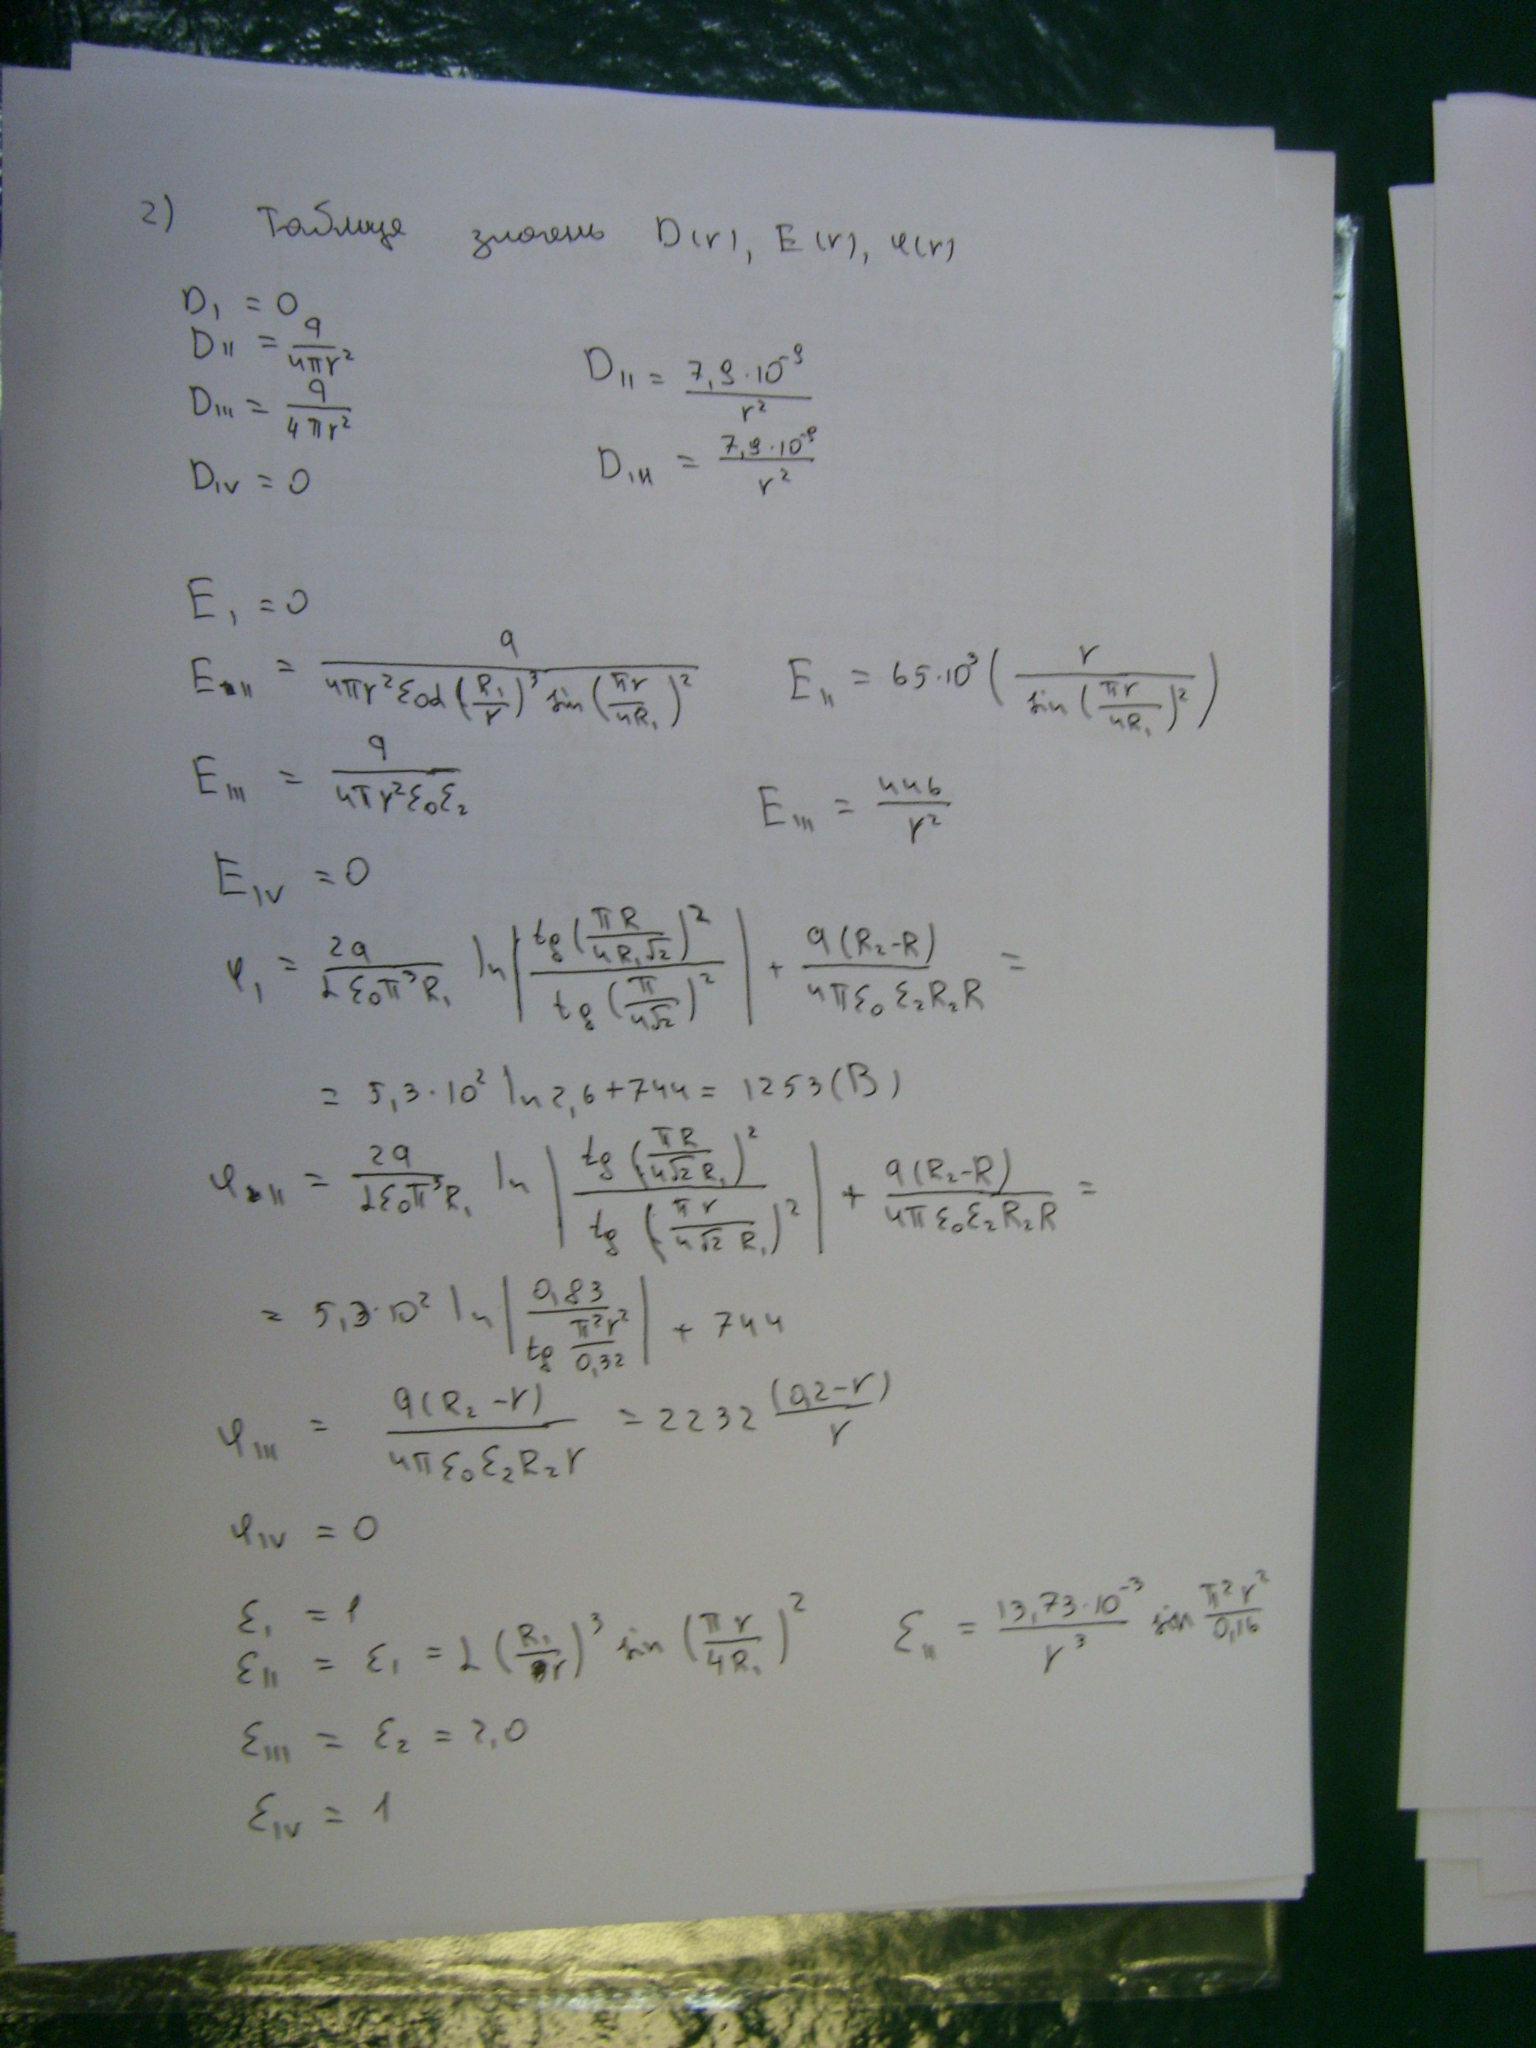 2) Таблиця значень D(r), E(r), φ(r)
D₁ = 0
D_II = q / 4πr²    D_II = 7,9·10⁻⁹ / r²
D_III = q / 4πr²    D_III = 7,9·10⁻⁹ / r²
D_IV = 0
E₁ = 0
E_II = q / (4πr²ε₀α (R₁/r)³ sin (πr/4R₁)²)    E_II = 65·10³ ( r / sin (πr/4R₁)² )
E_III = q / 4πr²ε₀ε₂    E_III = 446 / r²
E_IV = 0
φ₁ = 2q / αε₀π³R₁ ln | tg (πR/4R₁√2)² / tg (π/4√2)² | + q(R₂-R) / 4πε₀ε₂R₂R =
= 5,3·10² ln 2,6 + 744 = 1253 (В)
φ_II = 2q / αε₀π³R₁ ln | tg (πR/4√2R₁)² / tg (πr/4√2 R₁)² | + q(R₂-R) / 4πε₀ε₂R₂R =
= 5,3·10² ln | 0,83 / tg π²r²/0,32 | + 744
φ_III = q(R₂-r) / 4πε₀ε₂R₂r = 2232 (0,2-r) / r
φ_IV = 0
ε₁ = 1
ε_II = ε₁ = α (R₁/r)³ sin (πr/4R₁)²    ε_II = 13,73·10⁻³ / r³ sin π²r²/0,16
ε_III = ε₂ = 2,0
ε_IV = 1